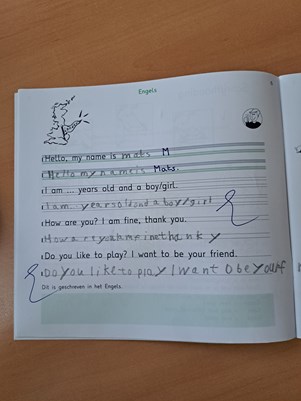 Engels
Hello, my name is mats M
Hello my name is Mats.
I am ... years old and a boy/girl.
I am years old and a boy/girl
How are you? I am fine, thank you.
Do you like to play? I want to be your friend.
Do you like to play I want
Dit is geschreven in het Engels.